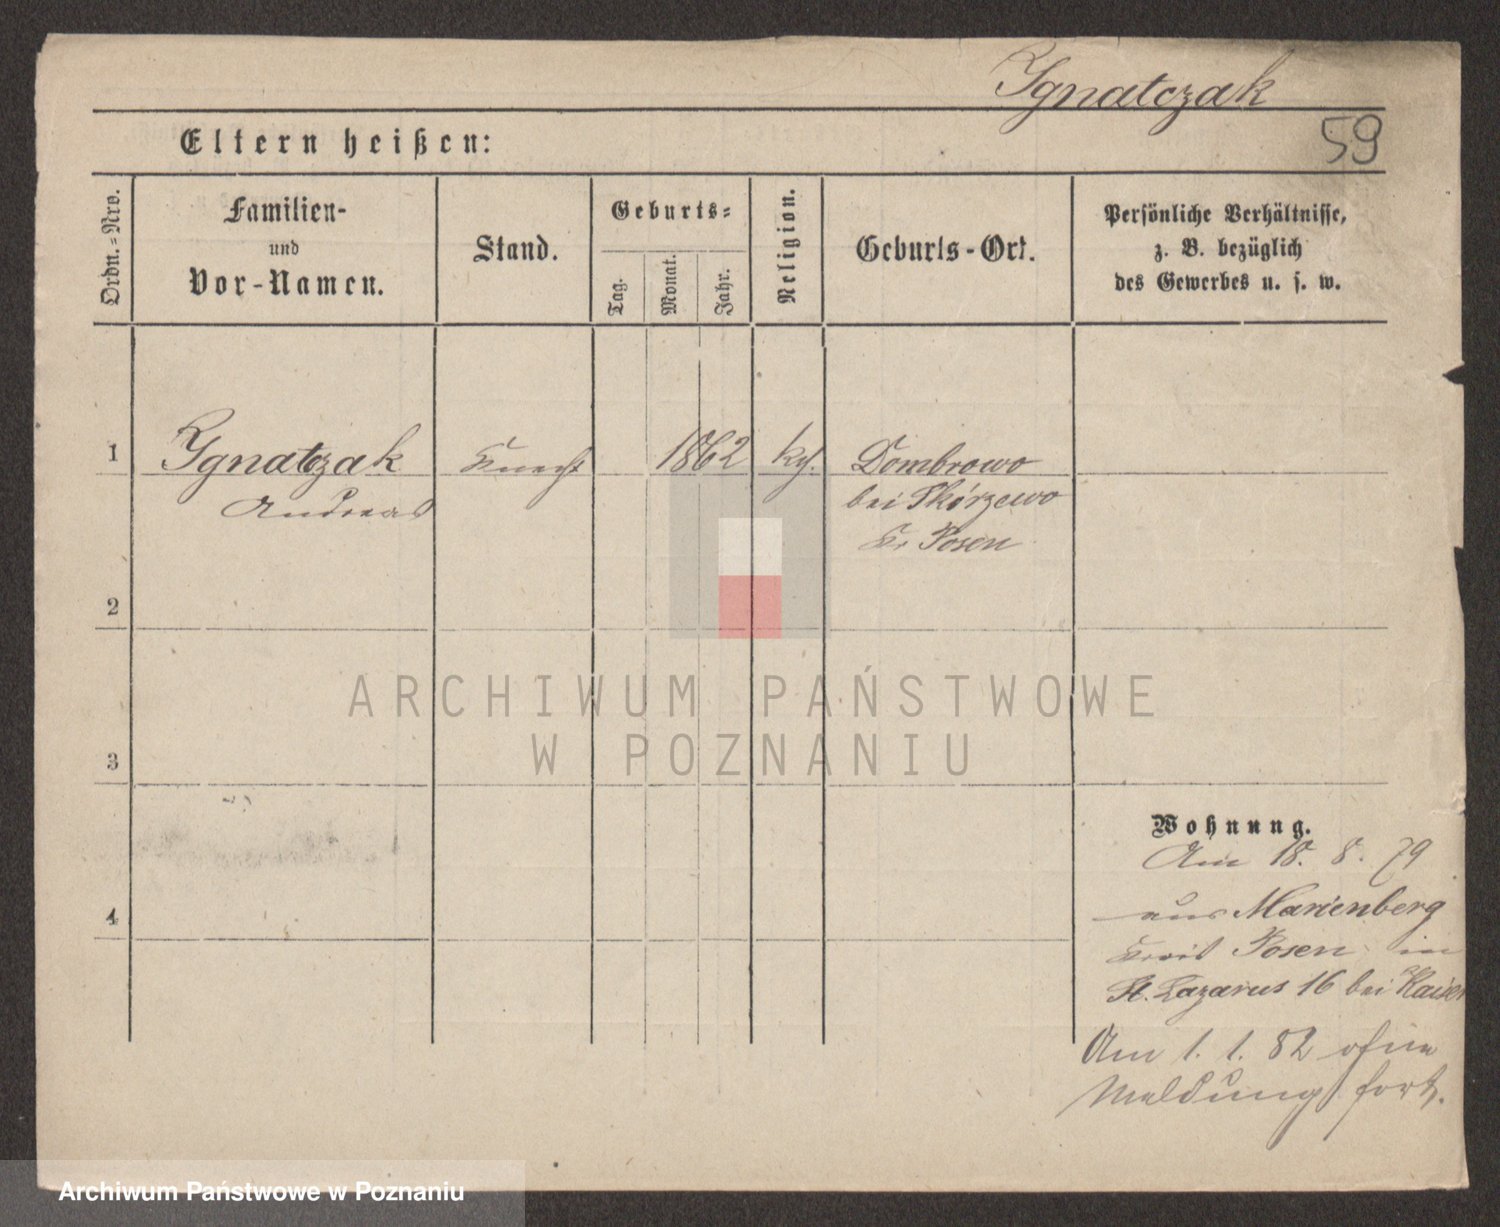 Ignatczak
59
Eltern heißen:
Ordn.=Nro.
Familien-
und
Vor-Namen.
Stand.
Geburts=
Tag.
Monat.
Jahr.
Religion.
Geburts-Ort.
Persönliche Verhältnisse,
z. B. bezüglich
des Gewerbes u. s. w.
1
Ignatczak
Andreas
Knecht
1862
kth.
Dombrowo
bei Skórzewo
Kr Posen
2
3
4
Wohnung.
Am 18. 8. 79
aus Marienberg
Kreis Posen in
St. Lazarus 16 bei Kaiser
Am 1. 1. 82 ohne
Meldung fort.
ARCHIWUM PAŃSTWOWE
W POZNANIU
Archiwum Państwowe w Poznaniu